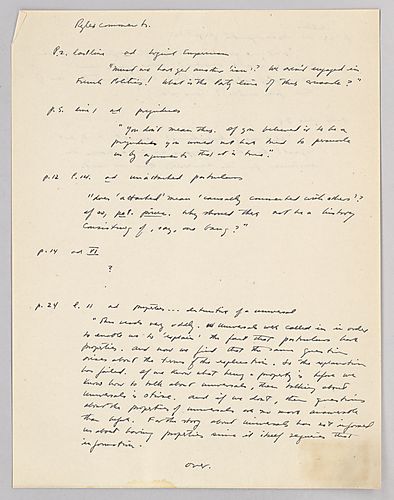 Ryle's comments.
P.2. last line ad logical Empiricism
"Must we have yet another 'ism'? We aren't engaged in
French Politics! What is the Party line of this crusade?"
p.5. line 1 ad prejudices
"You don't mean this. If you believed it to be a
prejudice you would not have tried to persuade
us by arguments that it is true."
p.12 l.14. ad unattached particulars
"does 'attached' mean 'causally connected with others'?
if so, pet. princ. Why should there not be a history
consisting of, say, one bang?"
p.14 ad VI
?
p.24 l. 11 ad properties... of a universal
"This reads very oddly. Universals were called in in order
to enable us to 'explain' the fact that particulars have
properties. And now we find that the same question
arises about the terms of the explanation. So the explanation
has failed. If we know what having a property is before we
know how to talk about universals, then talking about
universals is otiose. And if we don't, then questions
about the properties of universals are no more answerable
than before. For the story about universals has not informed
us about having properties since it itself requires that
information.
over.